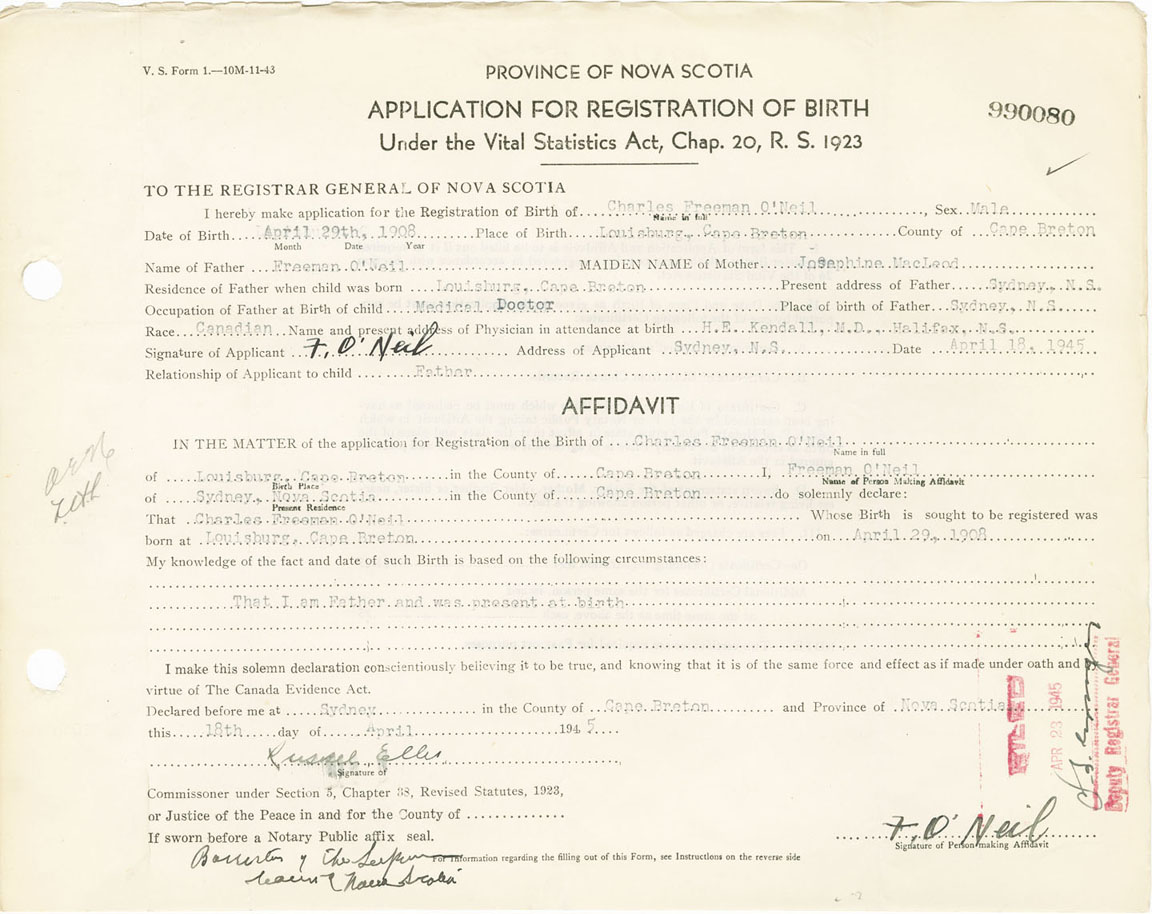 V. S. Form 1.—10M-11-43
PROVINCE OF NOVA SCOTIA
APPLICATION FOR REGISTRATION OF BIRTH
990080
Under the Vital Statistics Act, Chap. 20, R. S. 1923
TO THE REGISTRAR GENERAL OF NOVA SCOTIA
I hereby make application for the Registration of Birth of Charles Freeman O'Neil, Sex Male
Name in full
Date of Birth April 29th, 1908 Place of Birth Louisburg, Cape Breton County of Cape Breton
Month Date Year
Name of Father Freeman O'Neil MAIDEN NAME of Mother Josephine MacLeod
Residence of Father when child was born Louisburg, Cape Breton Present address of Father Sydney, N.S.
Occupation of Father at Birth of child Medical Doctor Place of birth of Father Sydney, N.S.
Race Canadian Name and present address of Physician in attendance at birth H.E. Kendall, M.D., Halifax, N.S.
Signature of Applicant F. O'Neil Address of Applicant Sydney, N.S. Date April 18, 1945
Relationship of Applicant to child Father
AFFIDAVIT
IN THE MATTER of the application for Registration of the Birth of Charles Freeman O'Neil
Name in full
of Louisburg, Cape Breton in the County of Cape Breton I, Freeman O'Neil
Birth Place Name of Person Making Affidavit
of Sydney, Nova Scotia in the County of Cape Breton do solemnly declare:
Present Residence
That Charles Freeman O'Neil Whose Birth is sought to be registered was
born at Louisburg, Cape Breton on April 29, 1908
My knowledge of the fact and date of such Birth is based on the following circumstances:
That I am Father and was present at birth
I make this solemn declaration conscientiously believing it to be true, and knowing that it is of the same force and effect as if made under oath and
virtue of The Canada Evidence Act.
Declared before me at Sydney in the County of Cape Breton and Province of Nova Scotia
this 18th day of April 1945
Russel Ellis
Signature of
Commissoner under Section 5, Chapter 38, Revised Statutes, 1923,
or Justice of the Peace in and for the County of
If sworn before a Notary Public affix seal.
F. O'Neil
Signature of Person making Affidavit
For Information regarding the filling out of this Form, see Instructions on the reverse side
of the
Nova Scotia
FILED
APR 23 1945
Deputy Registrar General